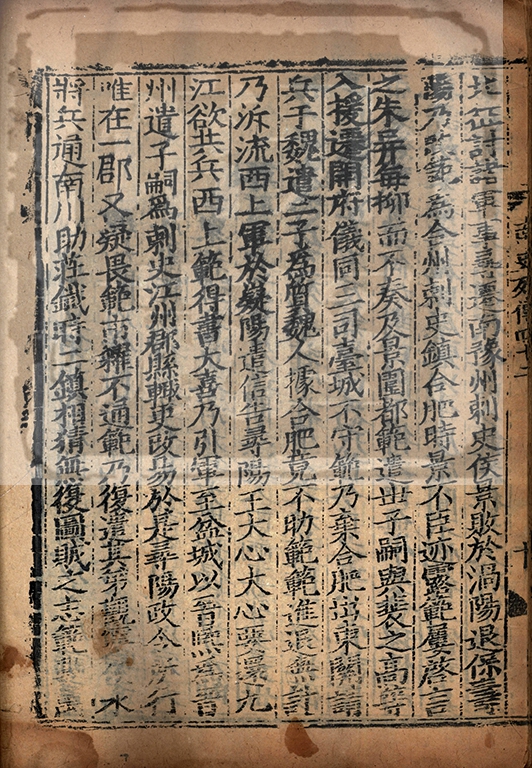 北征討諸軍事尋遷南豫州刺史侯景敗於渦陽退保壽
陽乃改範為合州刺史鎮合肥時景不臣亦露範屢啓言
之朱异每抑而不奏及景圍都範遣世子嗣與裴之高等
入援遷開府儀同三司臺城不守範乃棄合肥出東關請
兵于魏遣二子為質魏人據合肥竟不助範範進退無計
乃泝流西上軍於樅陽遣信告尋陽王大心大心要還九
江欲共兵西上範得書大喜乃引軍至盆城以晉熙為晉
州遣子嗣為刺史江州郡縣輒更改易於是尋陽政令所行
唯在一郡又疑畏範市糴不通範乃復遣其弟觀寧水
將兵通南川助莊鐵時二鎮相猜無復圖賊之志範數萬